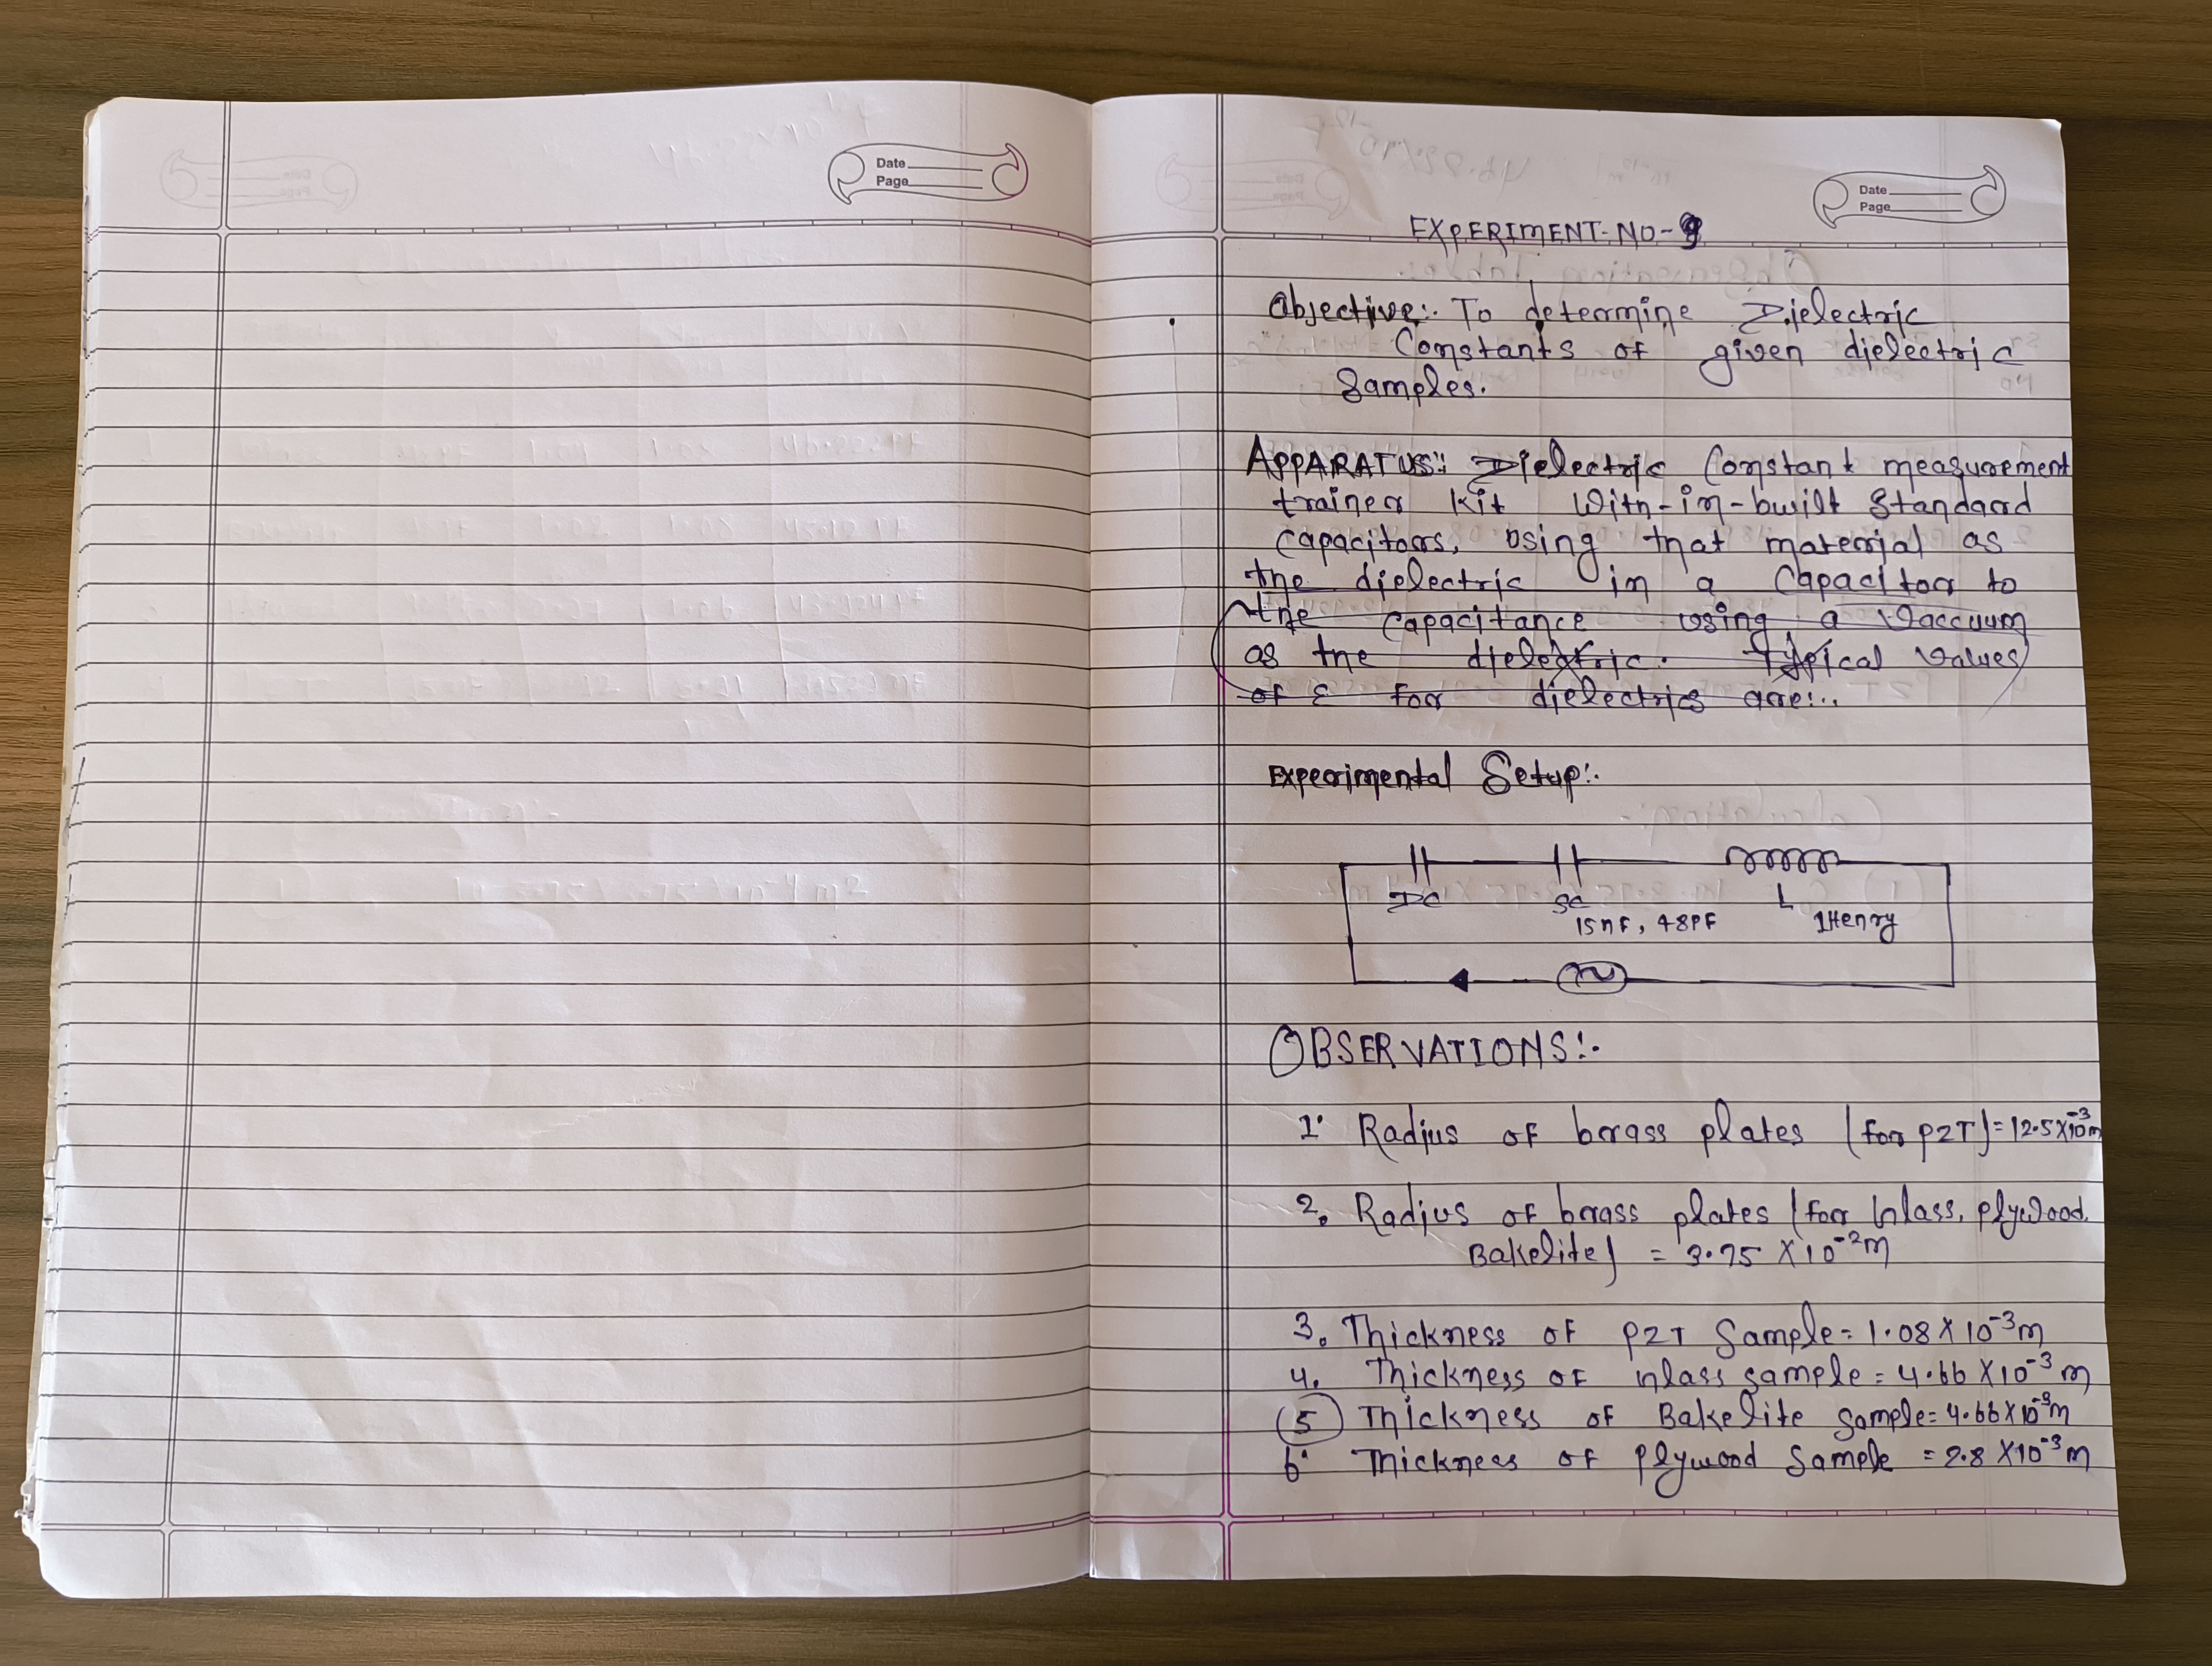 Date
Page
Date
Page
EXPERIMENT-NO-9
Objective:- To determine Dielectric
Constants of given dielectric
Samples.
APPARATUS:- Dielectric Constant measurement
trainer kit With-in-built Standard
Capacitors, Using that material as
the dielectric in a Capacitor to
the Capacitance using a Vaccuum
as the dielectric. Typical Values
of ε for dielectrics are:..
Experimental Setup:-
DC SC L
15nF, 48PF 1Henry
~
OBSERVATIONS:-
1. Radius of brass plates (for PZT) = 12.5X10⁻³m
2. Radius of brass plates (for Glass, plywood,
Bakelite) = 3.75 X 10⁻²m
3. Thickness of PZT Sample = 1.08 X 10⁻³m
4. Thickness of Glass sample = 4.66 X10⁻³m
5 Thickness of Bakelite sample = 4.66X10⁻³m
6. Thickness of plywood Sample = 2.8 X10⁻³m